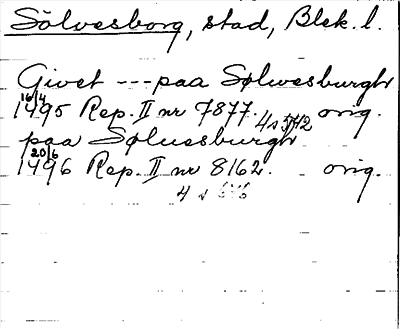 Sölvesborg, stad, Blek. l.
Givet --- paa Sølwesburgh
16/4
1495 Rep. II nr 7877. orig.
4 s 542
paa Søluesburgh
20/6
1496 Rep. II nr 8162. orig.
4 s